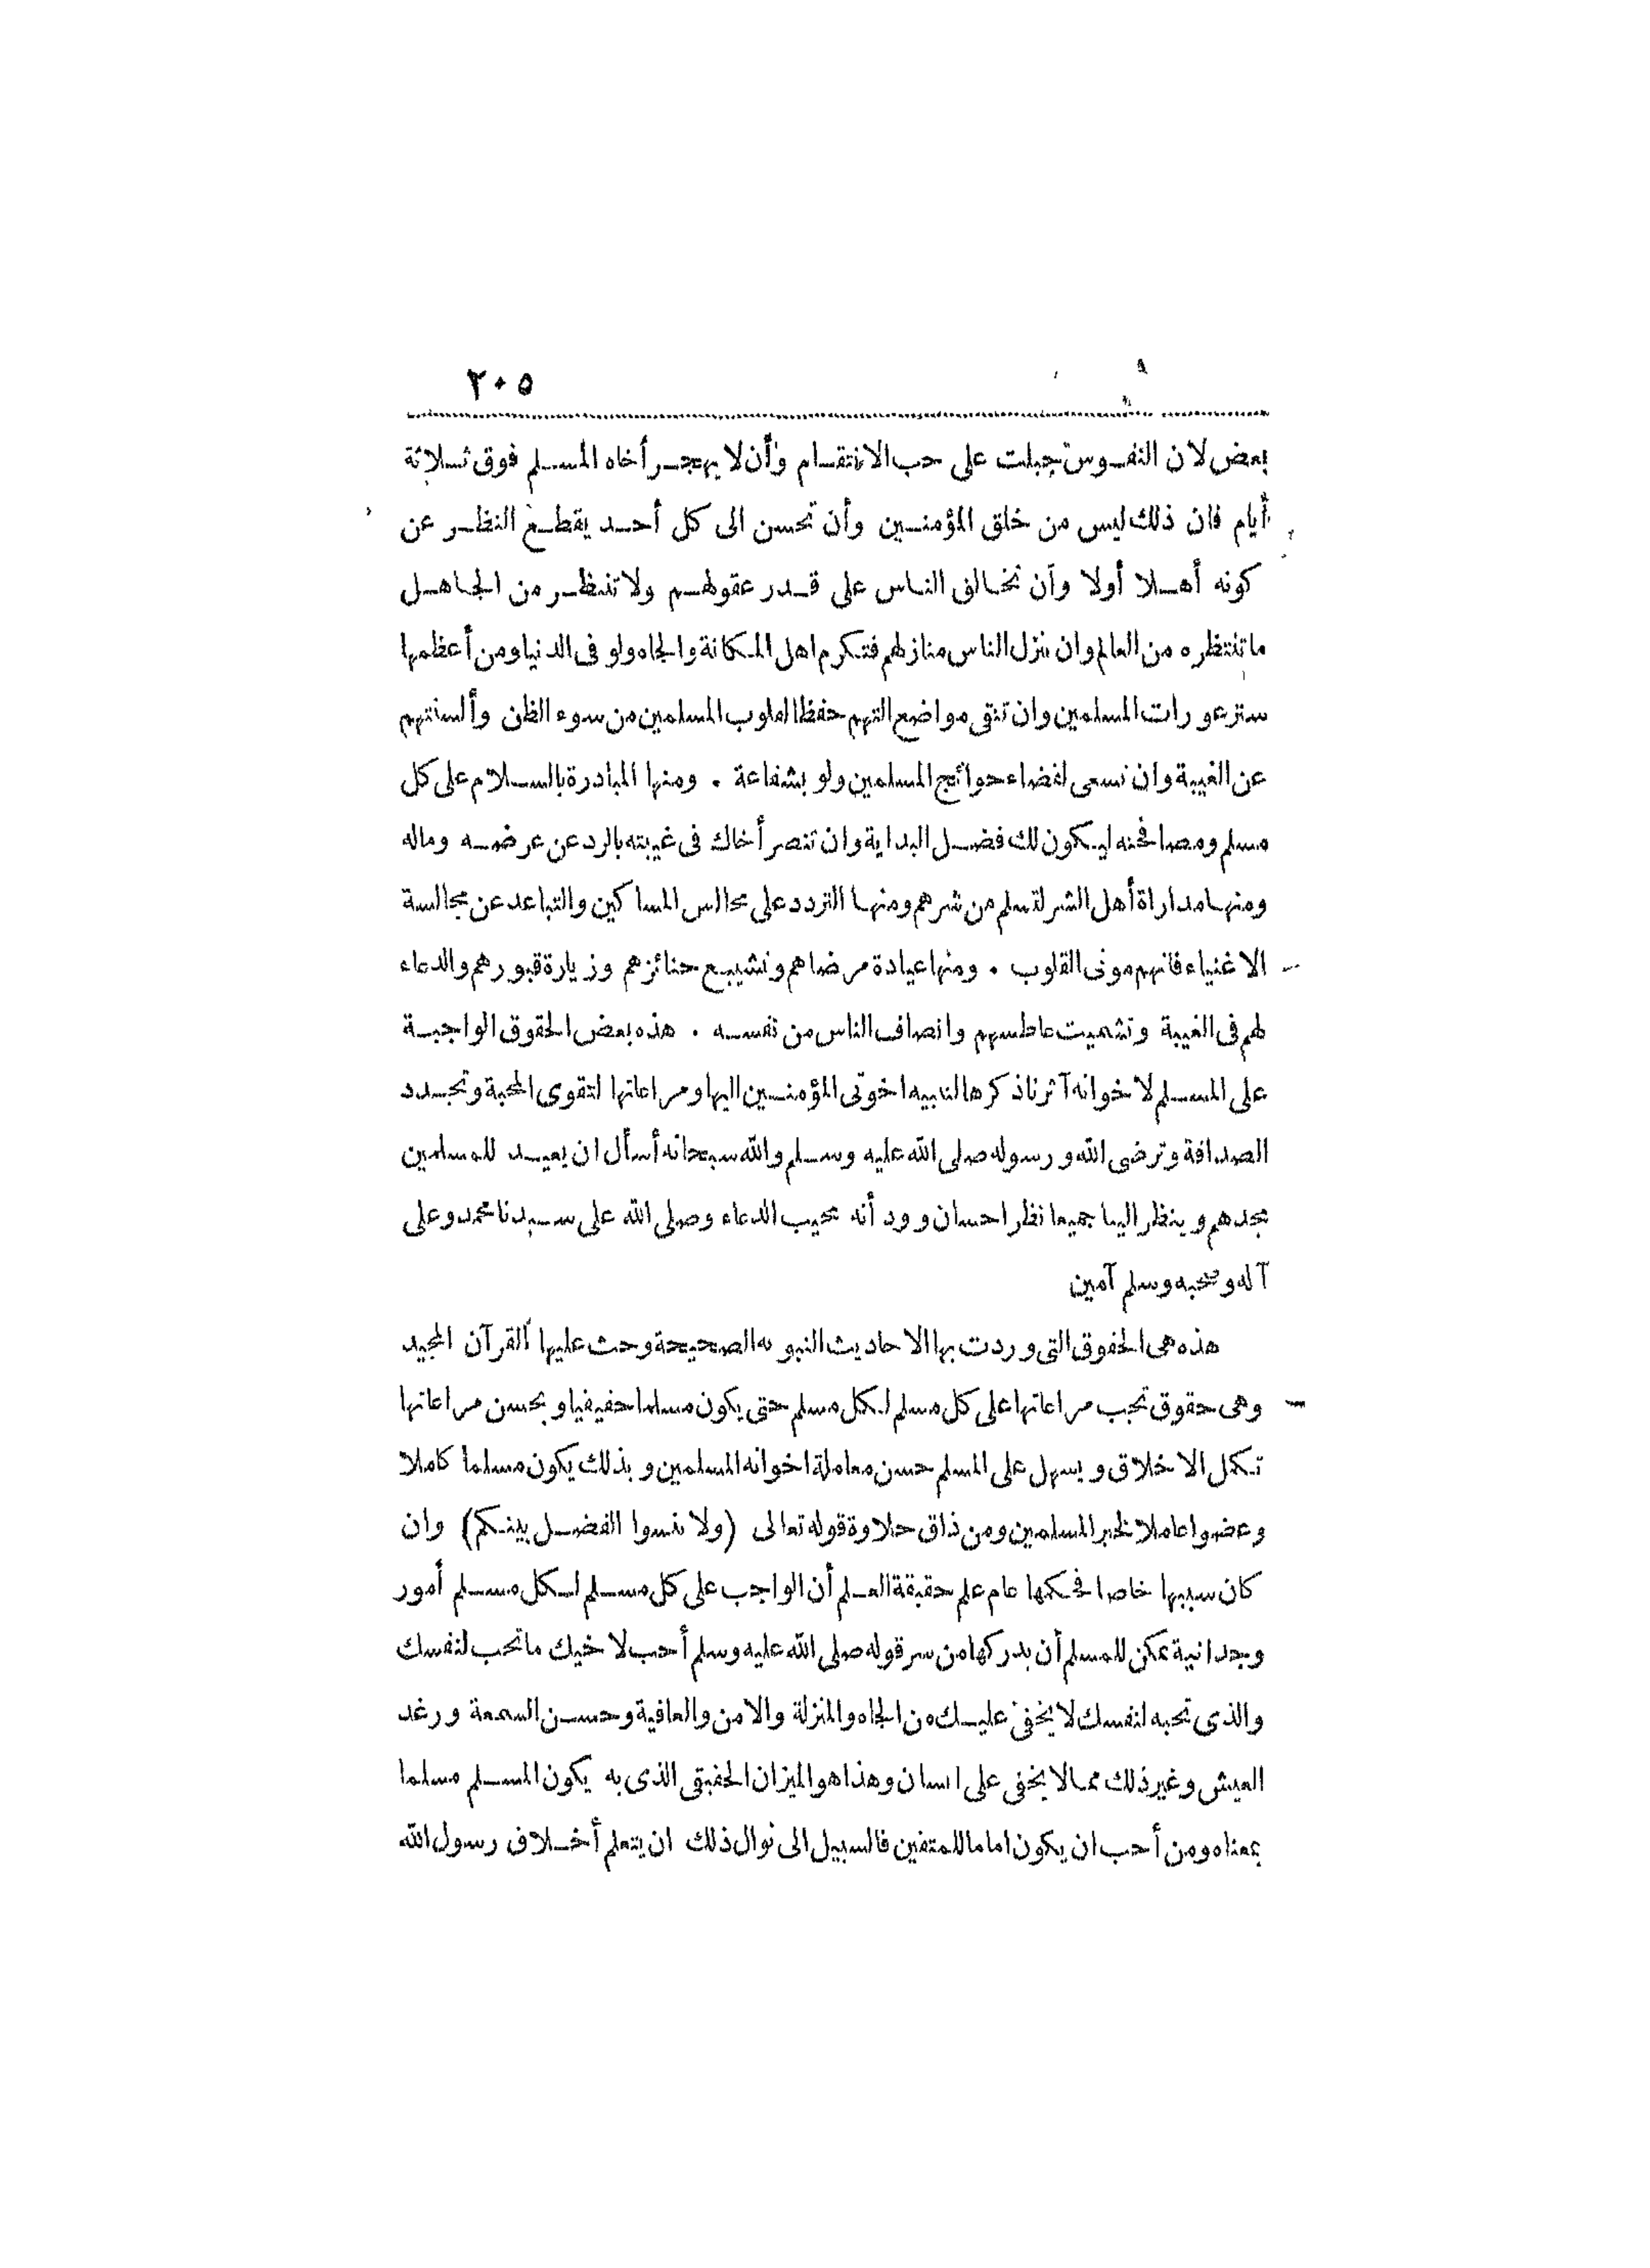 ٢٠٥
بعض لان النفوس جبلت على حب الانتقام وأن لا يهجر أخاه المسلم فوق ثلاثة
أيام فان ذلك ليس من خلق المؤمنين وأن تحسن الى كل أحد يقطع النظر عن
كونه أهلا أولا وأن تخالق الناس على قدر عقولهم ولا تنتظر من الجاهل
ما تنتظره من العالم وان تنزل الناس منازلهم فتكرم اهل المكانة والجاه ولو فى الدنيا ومن أعظمها
ستر عورات المسلمين وان تتقى مواضع التهم حفظا لقلوب المسلمين من سوء الظن وألسنتهم
عن الغيبة وان تسعى لقضاء حوائج المسلمين ولو بشفاعة . ومنها المبادرة بالسلام على كل
مسلم ومصافحته ليكون لك فضل البداية وان تنصر أخاك فى غيبته بالرد عن عرضه وماله
ومنها مداراة أهل الشر لتسلم من شرهم ومنها التردد على مجالس المساكين والتباعد عن مجالسة
الاغنياء فانهم موتى القلوب . ومنها عيادة مرضاهم وتشييع جنائزهم وزيارة قبورهم والدعاء
لهم فى الغيبة وتشميت عاطسهم وانصاف الناس من نفسه . هذه بعض الحقوق الواجبة
على المسلم لاخوانه آثرنا ذكرها لتنبيه اخوتى المؤمنين اليها ومراعاتها لتقوى المحبة وتجدد
الصداقة وترضى الله ورسوله صلى الله عليه وسلم والله سبحانه أسأل ان يعيد للمسلمين
مجدهم وينظر الينا جميعا نظر احسان وود أنه مجيب الدعاء وصلى الله على سيدنا محمد وعلى
آله وصحبه وسلم آمين
هذه هى الحقوق التى وردت بها الاحاديث النبويه الصحيحة وحث عليها القرآن المجيد
وهى حقوق تجب مراعاتها على كل مسلم لكل مسلم حتى يكون مسلما حقيقيا وبحسن مراعاتها
تكمل الاخلاق ويسهل على المسلم حسن معاملة اخوانه المسلمين وبذلك يكون مسلما كاملا
وعضوا عاملا لخير المسلمين ومن ذاق حلاوة قوله تعالى (ولا تنسوا الفضل بينكم) وان
كان سببها خاصا فحكمها عام علم حقيقة العلم أن الواجب على كل مسلم لكل مسلم أمور
وجدانية يمكن للمسلم أن يدركها من سر قوله صلى الله عليه وسلم أحب لاخيك ما تحب لنفسك
والذى تحبه لنفسك لا يخفى عليك من الجاه والمنزلة والامن والعافية وحسن السمعة ورغد
العيش وغير ذلك مما لا يخفى على انسان وهذا هو الميزان الحقيقى الذى به يكون المسلم مسلما
بمعناه ومن أحب ان يكون اماما للمتقين فالسبيل الى نوال ذلك ان يتعلم أخلاق رسول الله